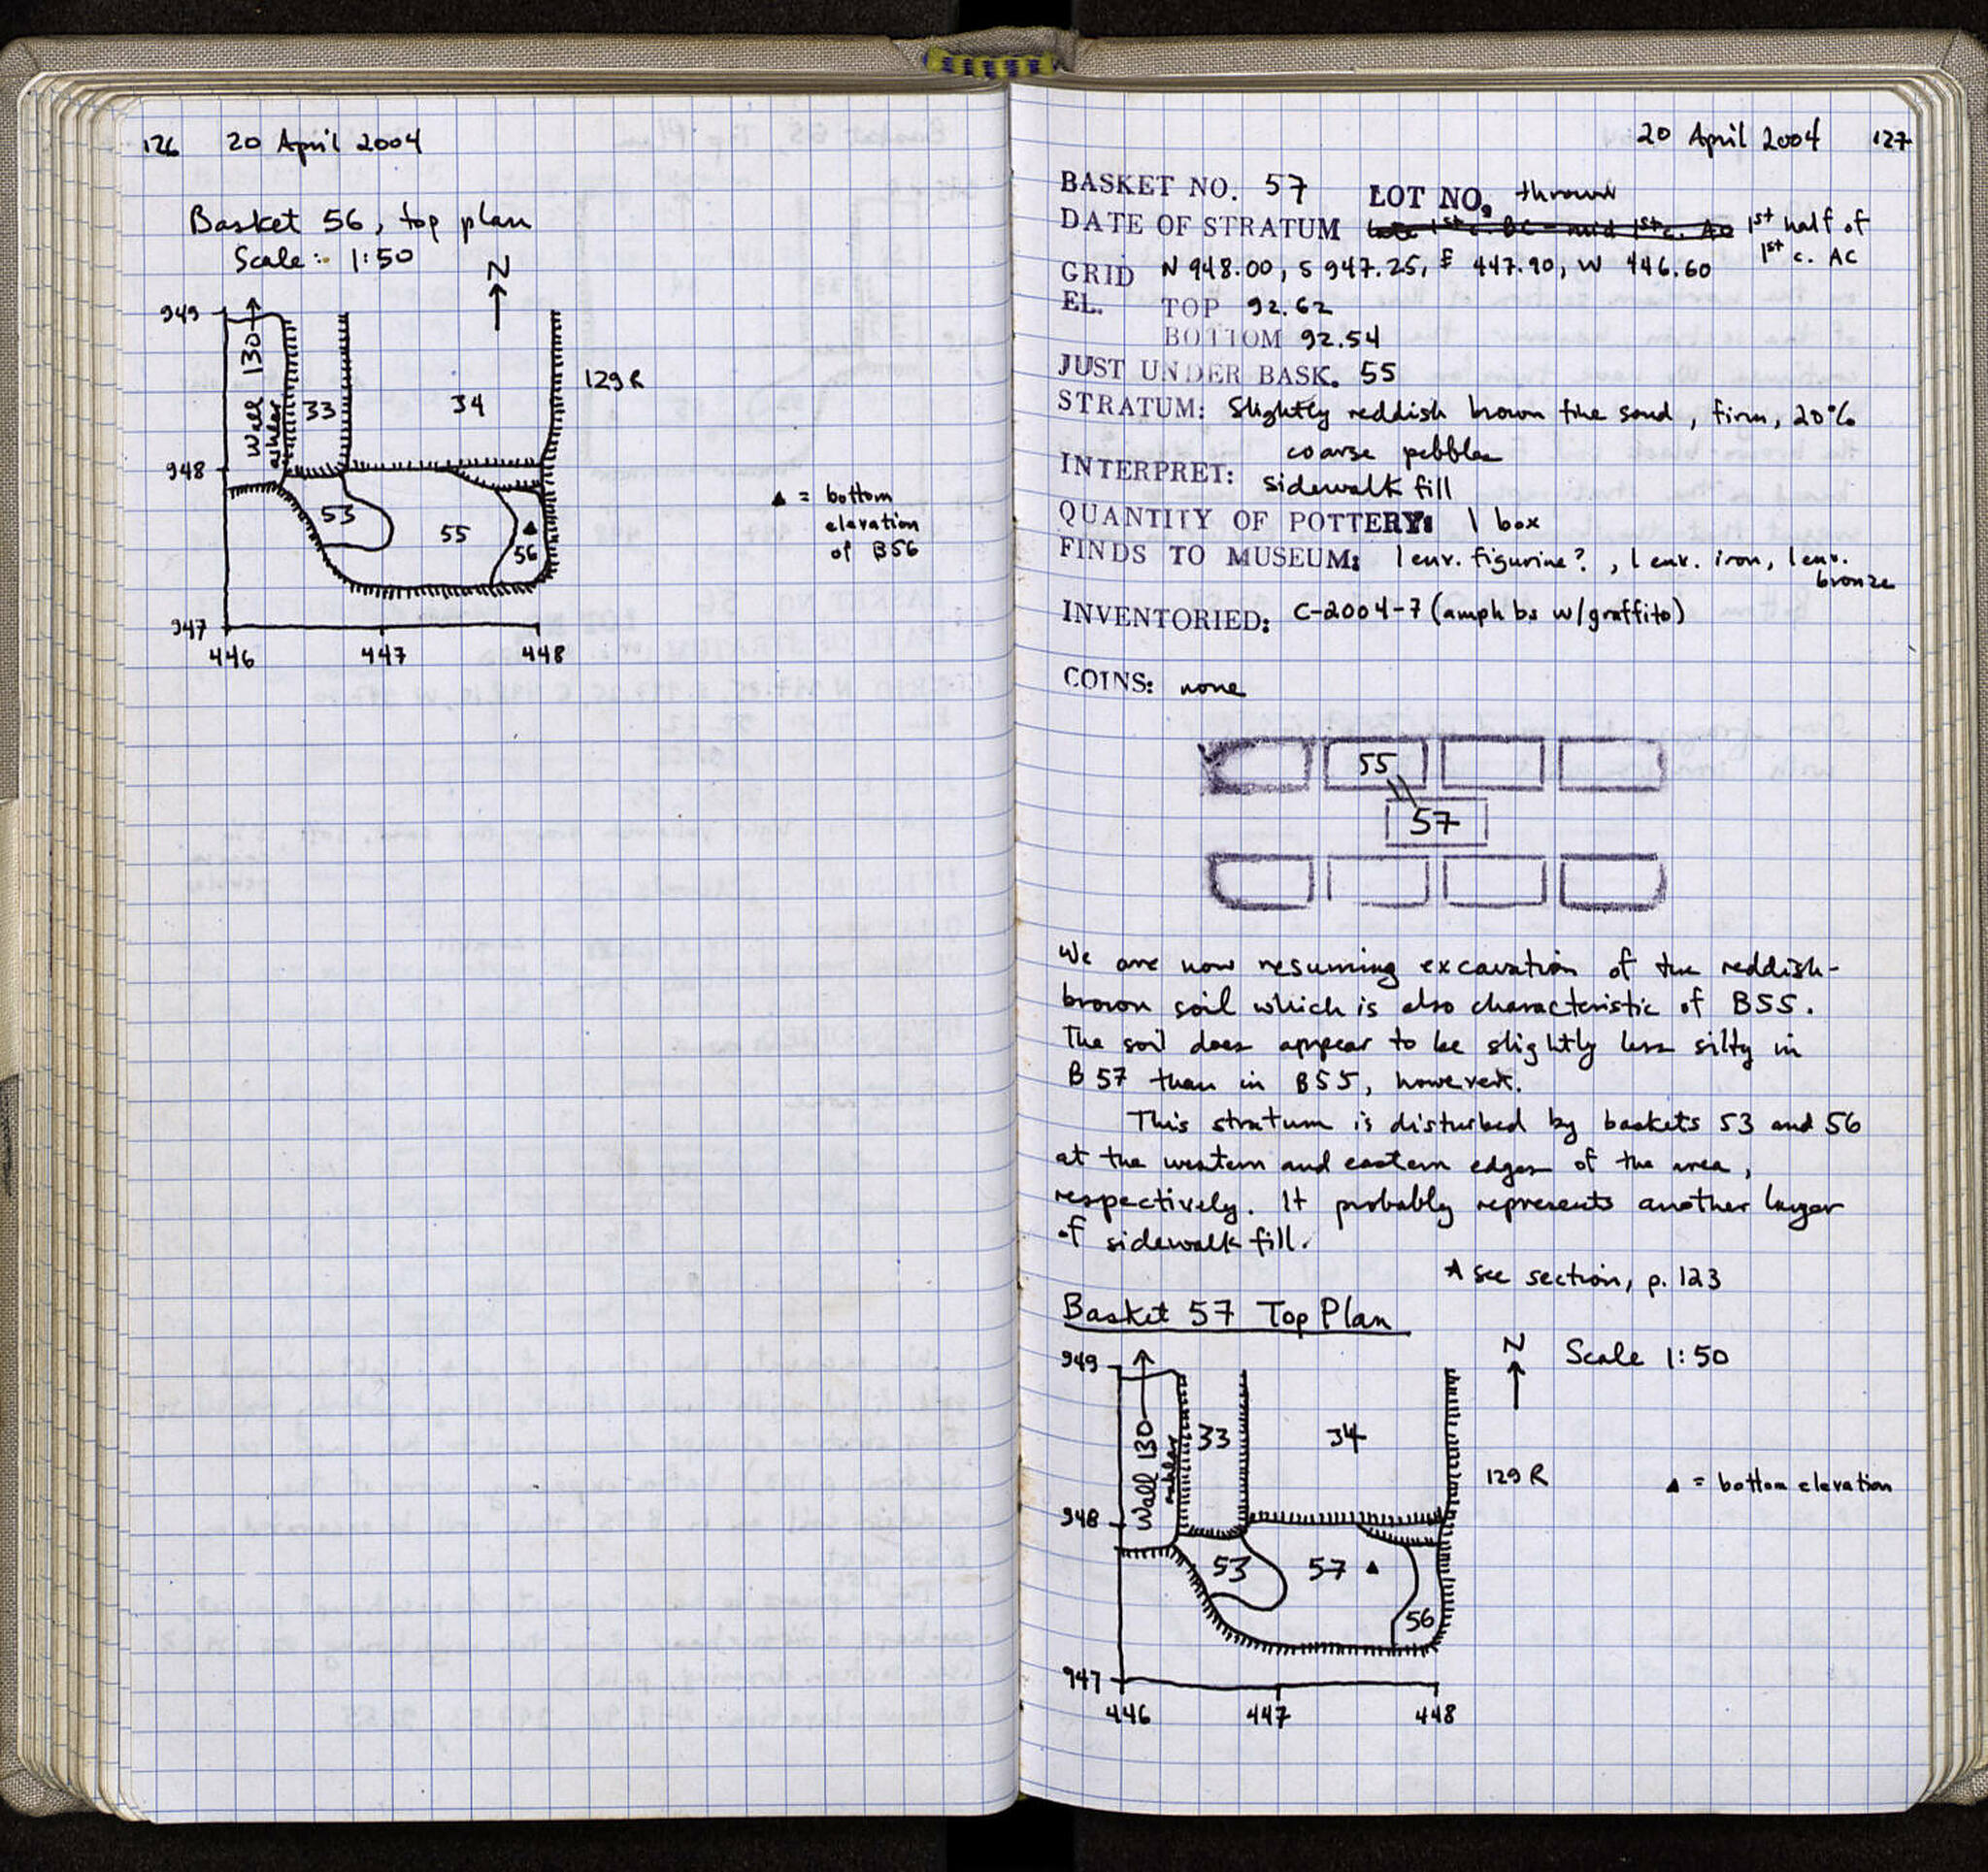 126 20 April 2004
Basket 56, top plan
Scale: 1:50
N
949
Wall 130
ashlar
33
34
129 R
948
53
55
56
▲ = bottom
elevation
of B56
947
446 447 448
20 April 2004 127
BASKET NO. 57 LOT NO. thrown
DATE OF STRATUM late 1st c. BC - mid 1st c. AD 1st half of
1st c. AC
GRID N 948.00, S 947.25, E 447.90, W 446.60
EL. TOP 92.62
BOTTOM 92.54
JUST UNDER BASK. 55
STRATUM: Slightly reddish brown fine sand, firm, 20%
coarse pebbles
INTERPRET: sidewalk fill
QUANTITY OF POTTERY: 1 box
FINDS TO MUSEUM: 1 env. figurine?, 1 env. iron, 1 env.
bronze
INVENTORIED: C-2004-7 (amph bs w/graffito)
COINS: none
55
57
We are now resuming excavation of the reddish-
brown soil which is also characteristic of B55.
The soil does appear to be slightly less silty in
B57 than in B55, however.
This stratum is disturbed by baskets 53 and 56
at the western and eastern edges of the area,
respectively. It probably represents another layer
of sidewalk fill.
* see section, p. 123
Basket 57 Top Plan
N Scale 1:50
949
Wall 130
ashlar
33
34
129 R
▲ = bottom elevation
948
53
57
56
947
446 447 448